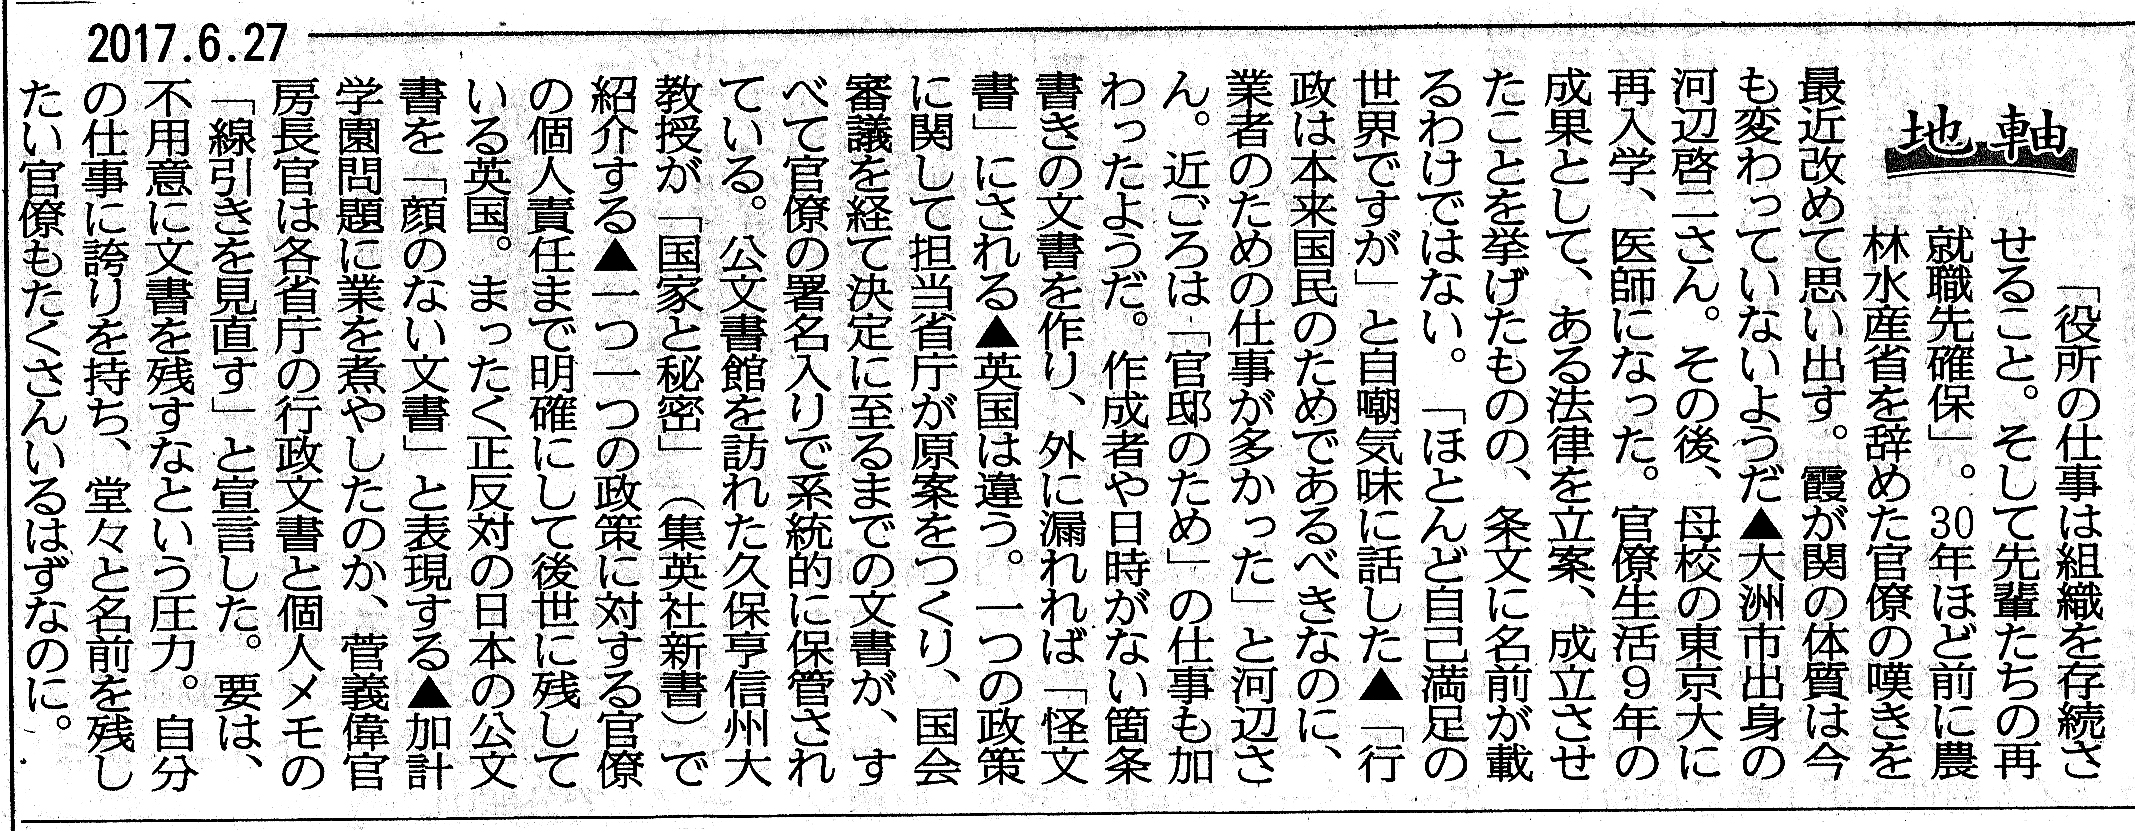 2017.6.27
地軸
「役所の仕事は組織を存続さ
せること。そして先輩たちの再
就職先確保」。30年ほど前に農
林水産省を辞めた官僚の嘆きを
最近改めて思い出す。霞が関の体質は今
も変わっていないようだ▲大洲市出身の
河辺啓二さん。その後、母校の東京大に
再入学、医師になった。官僚生活９年の
成果として、ある法律を立案、成立させ
たことを挙げたものの、条文に名前が載
るわけではない。「ほとんど自己満足の
世界ですが」と自嘲気味に話した▲「行
政は本来国民のためであるべきなのに、
業者のための仕事が多かった」と河辺さ
ん。近ごろは「官邸のため」の仕事も加
わったようだ。作成者や日時がない箇条
書きの文書を作り、外に漏れれば「怪文
書」にされる▲英国は違う。一つの政策
に関して担当省庁が原案をつくり、国会
審議を経て決定に至るまでの文書が、す
べて官僚の署名入りで系統的に保管され
ている。公文書館を訪れた久保亨信州大
教授が「国家と秘密」（集英社新書）で
紹介する▲一つ一つの政策に対する官僚
の個人責任まで明確にして後世に残して
いる英国。まったく正反対の日本の公文
書を「顔のない文書」と表現する▲加計
学園問題に業を煮やしたのか、菅義偉官
房長官は各省庁の行政文書と個人メモの
「線引きを見直す」と宣言した。要は、
不用意に文書を残すなという圧力。自分
の仕事に誇りを持ち、堂々と名前を残し
たい官僚もたくさんいるはずなのに。